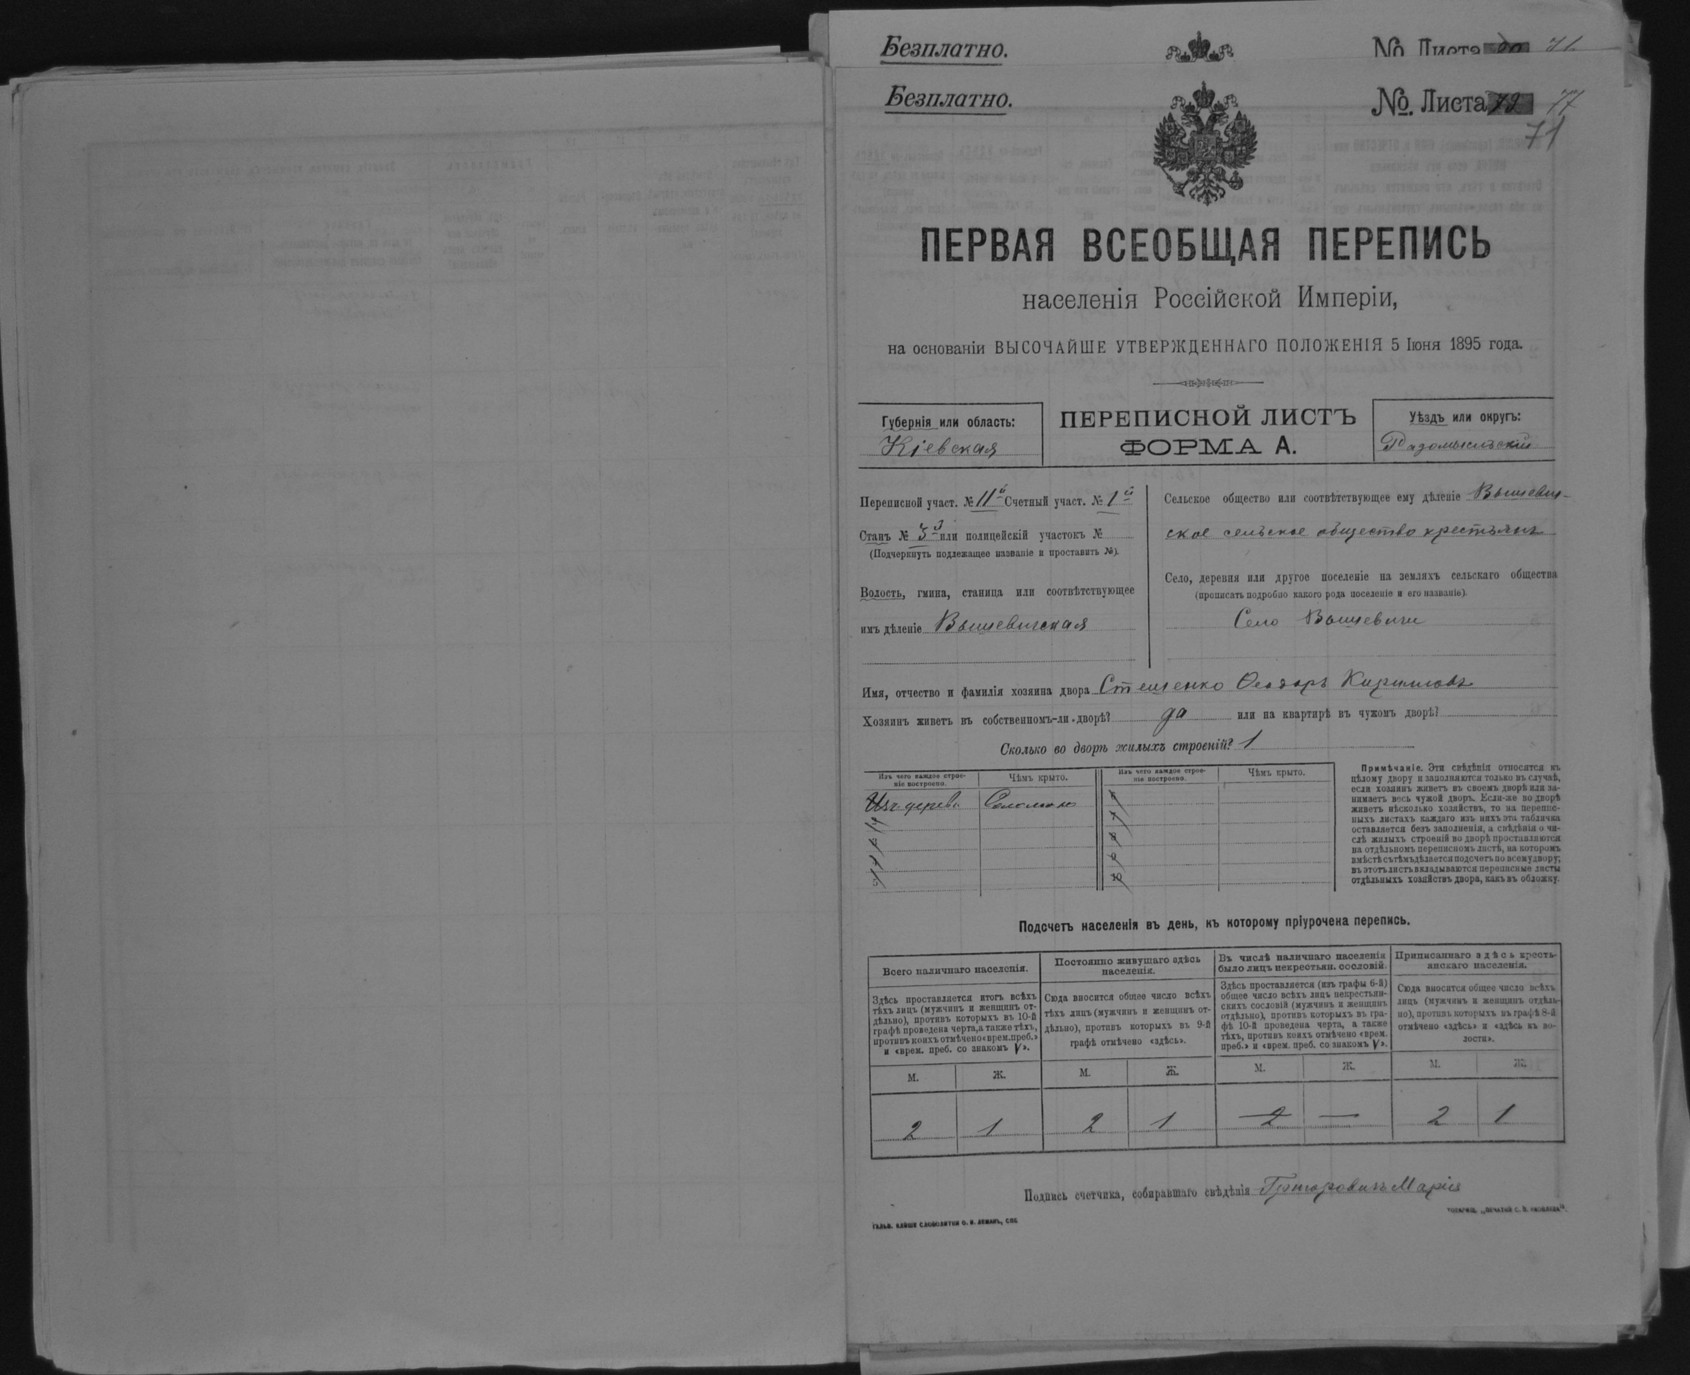 Безплатно.
№ Листа
Безплатно.
№. Листа 77
71
ПЕРВАЯ ВСЕОБЩАЯ ПЕРЕПИСЬ
населенія Россійской Имперіи,
на основаніи ВЫСОЧАЙШЕ УТВЕРЖДЕННАГО ПОЛОЖЕНІЯ 5 Іюня 1895 года.
Губернія или область:
Кіевская
ПЕРЕПИСНОЙ ЛИСТЪ
ФОРМА А.
Уѣздъ или округъ:
Радомысльскій
Переписной участ. № 11й Счетный участ. № 1й
Станъ № 3й или полицейскій участокъ №
(Подчеркнуть подлежащее названіе и проставить №).
Волость, гмина, станица или соотвѣтствующее
имъ дѣленіе Вышевичская
Сельское общество или соотвѣтствующее ему дѣленіе Вышевич-
ское сельское общество крестьянъ
Село, деревня или другое поселеніе на земляхъ сельскаго общества
(прописать подробно какого рода поселеніе и его названіе).
Село Вышевичи
Имя, отчество и фамилія хозяина двора Стешенко Ѳеодоръ Кирилловъ
Хозяинъ живетъ въ собственномъ-ли дворѣ? да или на квартирѣ въ чужомъ дворѣ?
Сколько во дворѣ жилыхъ строеній? 1
Изъ чего каждое строе-
ніе построено.
Чѣмъ крыто.
Изъ дерева
Соломою
Изъ чего каждое строе-
ніе построено.
Чѣмъ крыто.
10
Примѣчаніе. Эти свѣдѣнія относятся къ
цѣлому двору и заполняются только въ случаѣ,
если хозяинъ живетъ въ своемъ дворѣ или за-
нимаетъ весь чужой дворъ. Если-же во дворѣ
живетъ нѣсколько хозяйствъ, то на перепис-
ныхъ листахъ каждаго изъ нихъ эта табличка
оставляется безъ заполненія, а свѣдѣнія о чи-
слѣ жилыхъ строеній во дворѣ проставляются
на отдѣльномъ переписномъ листѣ, на которомъ
вмѣстѣ съ тѣмъ дѣлается подсчетъ по всему двору;
въ этотъ листъ вкладываются переписные листы
отдѣльныхъ хозяйствъ двора, какъ въ обложку.
Подсчетъ населенія въ день, къ которому пріурочена перепись.
Всего наличнаго населенія.
Здѣсь проставляется итогъ всѣхъ
тѣхъ лицъ (мужчинъ и женщинъ от-
дѣльно), противъ которыхъ въ 10-й
графѣ проведена черта, а также тѣхъ,
противъ коихъ отмѣчено «врем. преб.»
и «врем. преб. со знакомъ V».
М. Ж.
2 1
Постоянно живущаго здѣсь
населенія.
Сюда вносится общее число всѣхъ
тѣхъ лицъ (мужчинъ и женщинъ от-
дѣльно), противъ которыхъ въ 9-й
графѣ отмѣчено «здѣсь».
М. Ж.
2 1
Въ числѣ наличнаго населенія
было лицъ некрестьян. сословій.
Здѣсь проставляется (изъ графы 6-й)
общее число всѣхъ лицъ некрестьян-
скихъ сословій (мужчинъ и женщинъ
отдѣльно), противъ которыхъ въ гра-
фѣ 10-й проведена черта, а также
тѣхъ, противъ коихъ отмѣчено «врем.
преб.» и «врем. преб. со знакомъ V».
М. Ж.
2 —
Приписаннаго здѣсь кресть-
янскаго населенія.
Сюда вносится общее число всѣхъ
лицъ (мужчинъ и женщинъ отдѣль-
но), противъ которыхъ въ графѣ 8-й
отмѣчено «здѣсь» и «здѣсь въ во-
лости».
М. Ж.
2 1
Подпись счетчика, собиравшаго свѣдѣнія Григоровичъ Марія
ГАЛЬВ. КЛИШЕ СЛОВОЛИТНИ О. И. ЛЕМАНЪ, СПБ.
ТОВАРИЩ. „ПЕЧАТНЯ С. П. ЯКОВЛЕВА".